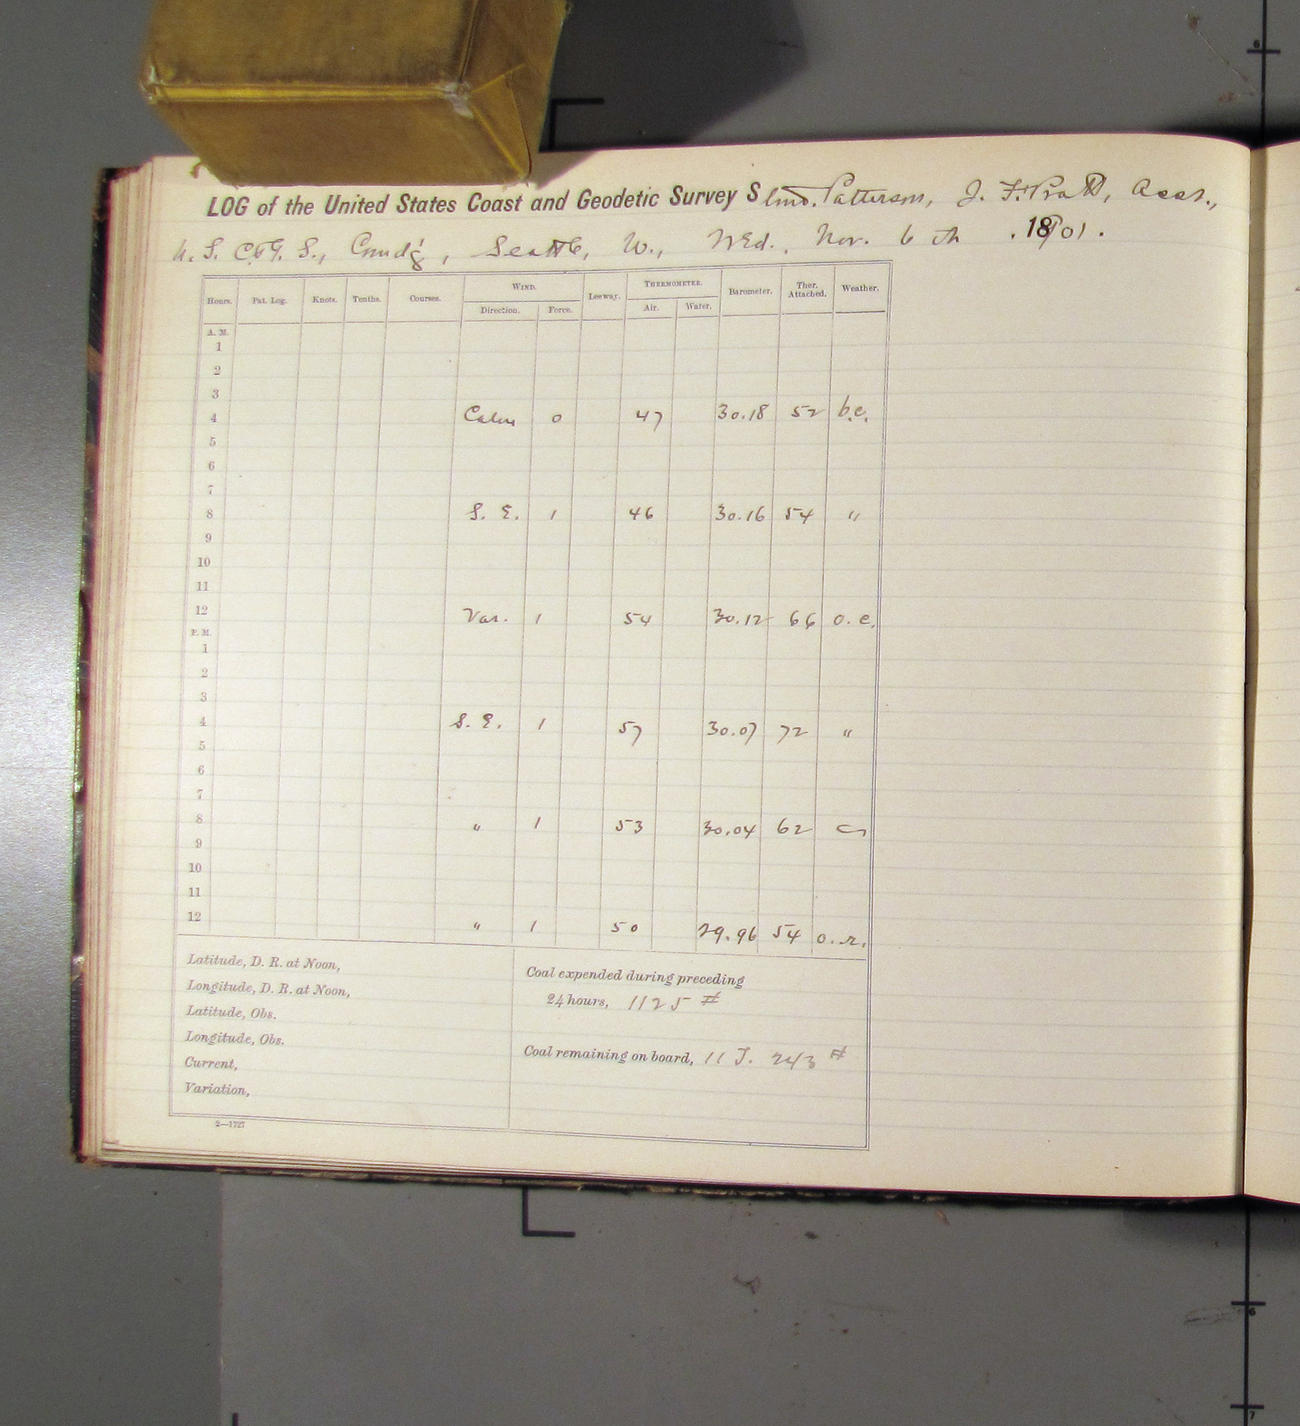 LOG of the United States Coast and Geodetic Survey Stmr. Patterson, J. F. Pratt, Asst.,
U. S. C. & G. S., Comdg, Seattle, W., Wed., Nov. 6th, 1901.
Hours. Pat. Log. Knots. Tenths. Courses. WIND. Leeway. THERMOMETER. Barometer. Ther. Attached. Weather.
Direction. Force. Air. Water.
A. M.
1
2
3
4 Calm 0 47 30.18 52 b.c.
5
6
7
8 S. E. 1 46 30.16 54 "
9
10
11
12 Var. 1 54 30.12 66 o. c.
P. M.
1
2
3
4 S. E. 1 57 30.07 72 "
5
6
7
8 " 1 53 30.04 62
9
10
11
12 " 1 50 29.96 54 o. r.
Latitude, D. R. at Noon,
Longitude, D. R. at Noon,
Latitude, Obs.
Longitude, Obs.
Current,
Variation,
Coal expended during preceding
24 hours, 1125 #
Coal remaining on board, 11 T. 243 #
2—1727
6
6
7